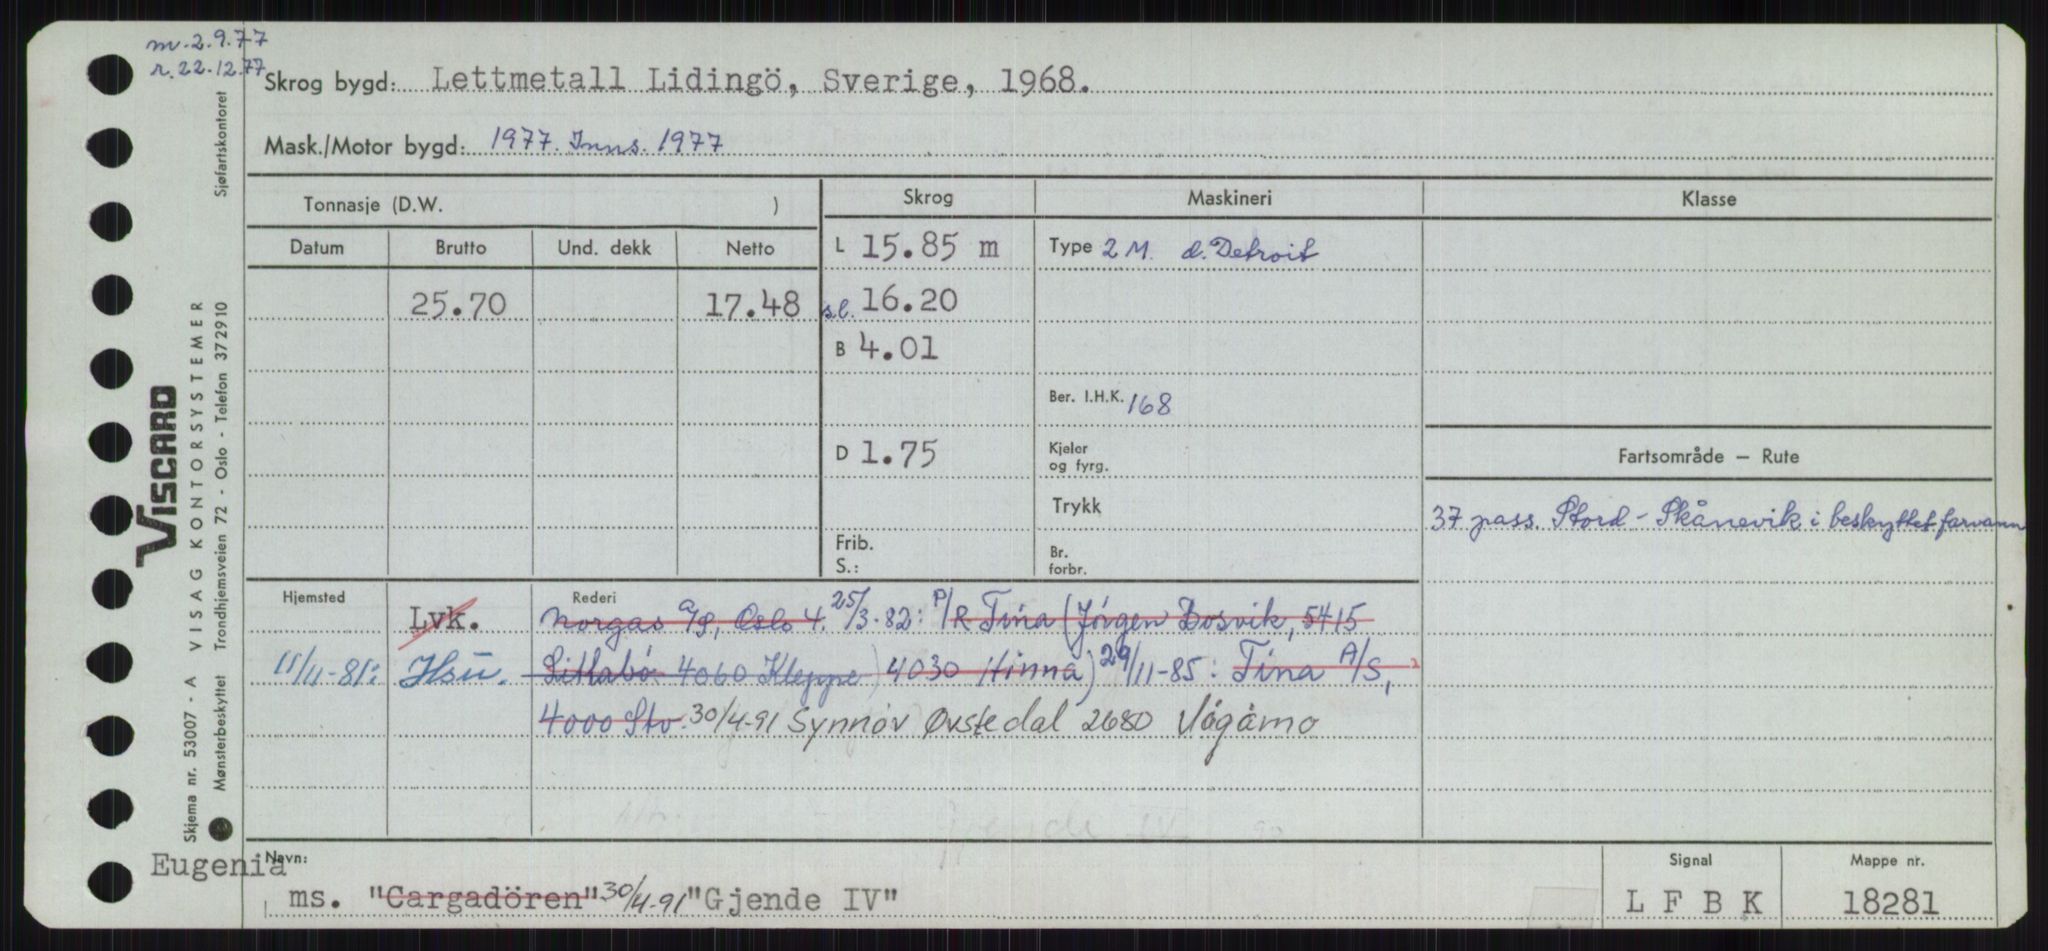 m. 2.9.77
r. 22.12.77
Skrog bygd: Lettmetall Lidingö, Sverige, 1968.
Mask./Motor bygd: 1977. Inns. 1977
Tonnasje (D.W. )
Skrog
Maskineri
Klasse
Datum Brutto Und. dekk Netto
25.70 17.48
L 15.85 m
s.l. 16.20
B 4.01
D 1.75
Frib.
S.:
Type 2 M. d. Detroit
Ber. I.H.K. 168
Kjeler
og fyrg.
Trykk
Br.
forbr.
Fartsområde — Rute
37 pass. Stord - Skånevik i beskyttet farvann
Hjemsted Rederi
Lvk. Norgas A/S, Oslo 4. 25/3-82: P/R Tina (Jörgen Bosvik, 5415
11/11-81: Hsu. Litlabö 4060 Kleppe) 4030 Hinna) 29/11-85: Tina A/S,
4000 Stv. 30/4-91 Synnøv Øvstedal 2680 Vågåmo
Gjende IV
Navn:
Eugenia
ms. "Cargadören" 30/4-91 "Gjende IV"
Signal
L F B K
Mappe nr.
18281
VISCARD
Skjema nr. 53007 - A VISAG KONTORSYSTEMER
Mønsterbeskyttet Trondhjemsveien 72 - Oslo - Telefon 372910 Sjøfartskontoret